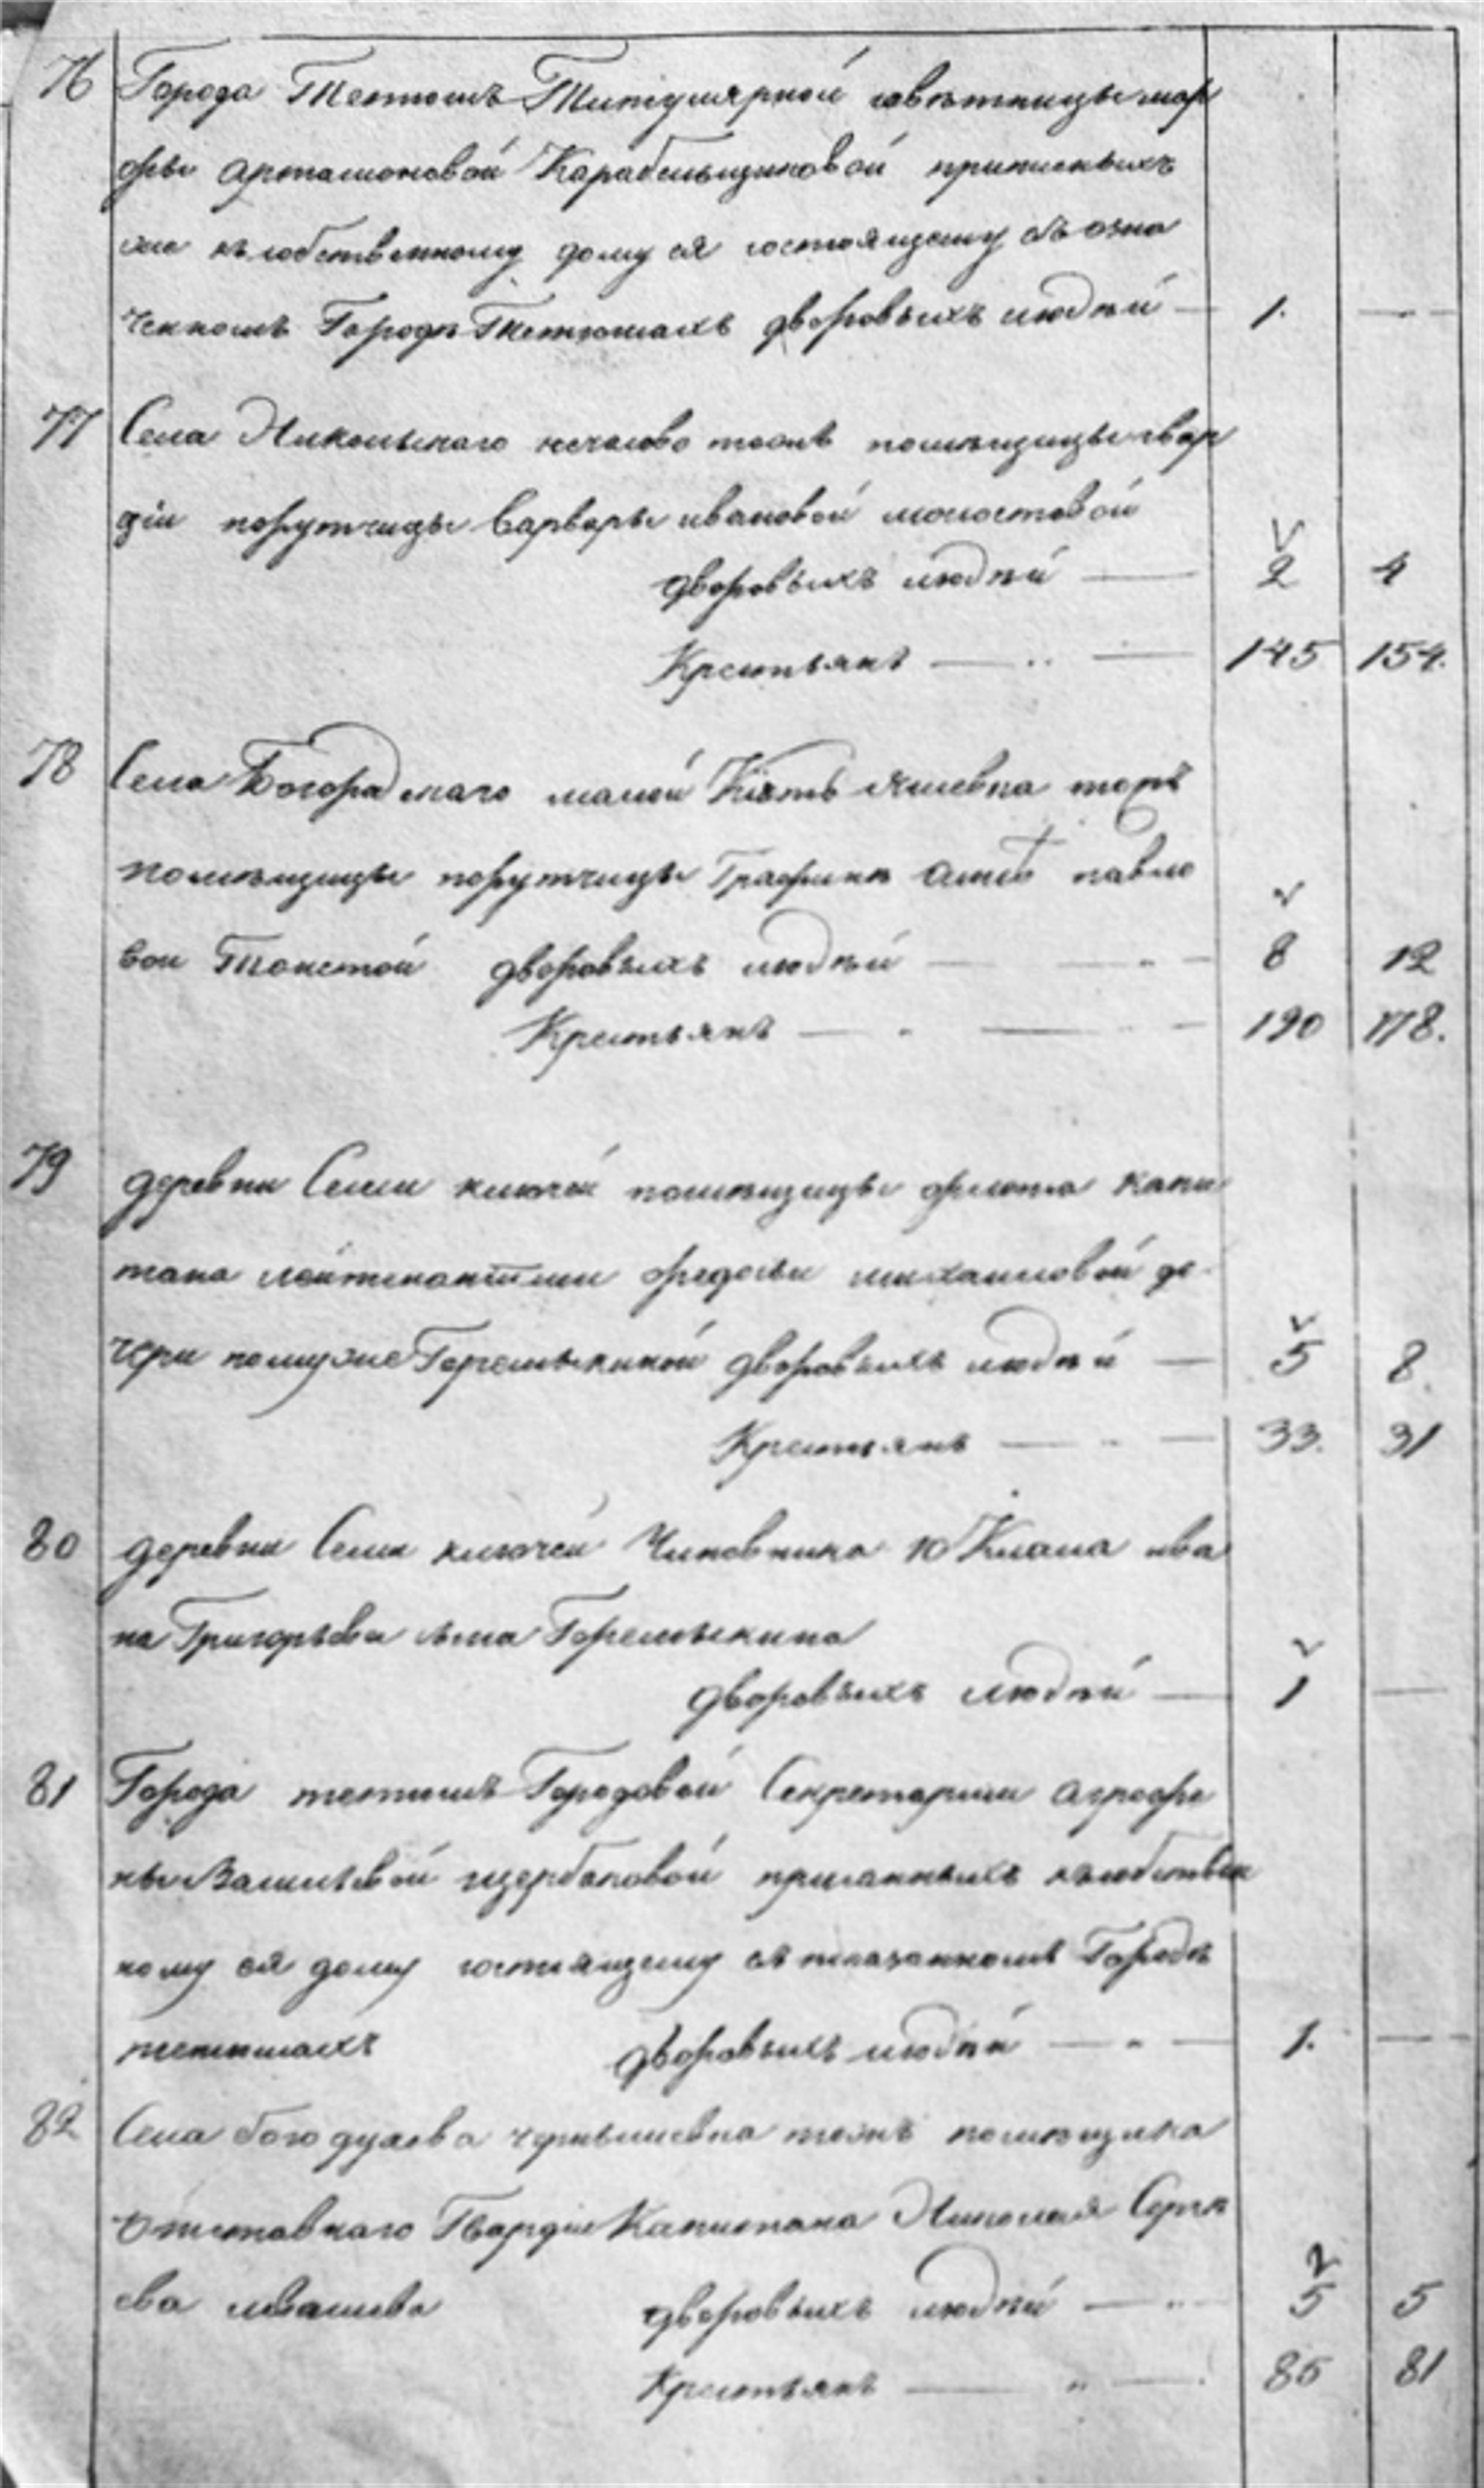 76 Города Тетюшъ Титулярной советницы мар
фы Артамоновой Карабельщиковой приписныхъ
ею къ собственному дому ея состоящему въ озна
ченномъ Городѣ Тетюшахъ дворовыхъ людѣй — 1. —
77 Села Никольскаго тожъ помѣщицы гвар
діи порутчицы Варвары ивановой молостовой
дворовыхъ людѣй — 2 4
Крестьянъ — 145 154.
78 Села Богородскаго малой тожъ
помѣщицы порутчицы Графини павло
вои Толстой дворовыхъ людѣй — 8 12
Крестьянъ — 190 178.
79 деревни Семи ключей помѣщицы флота капи
тана лейтенантши федосьи михаиловой до
чери помужѣ Горемыкиной дворовыхъ людѣй — 5 8.
Крестьянъ — 33. 31
80 деревни Семи ключей Чиновника 10 Класа ива
на Григорьева сына Горемыкина
дворовыхъ людѣй — 1 —
81 Города тетюшъ Городовой Секретарши Аграфе
ны Васильевой щербаковой приписанныхъ къ собствен
ному ея дому состоящему въ показанномъ Городѣ
тетюшахъ дворовыхъ людѣй — 1. —
82 Села богодухова тожъ помѣщика
отставнаго Гвардіи Капитана Николая Сергѣ
ева ивашева дворовыхъ людѣй — 5 5
Крестьянъ — 85 81